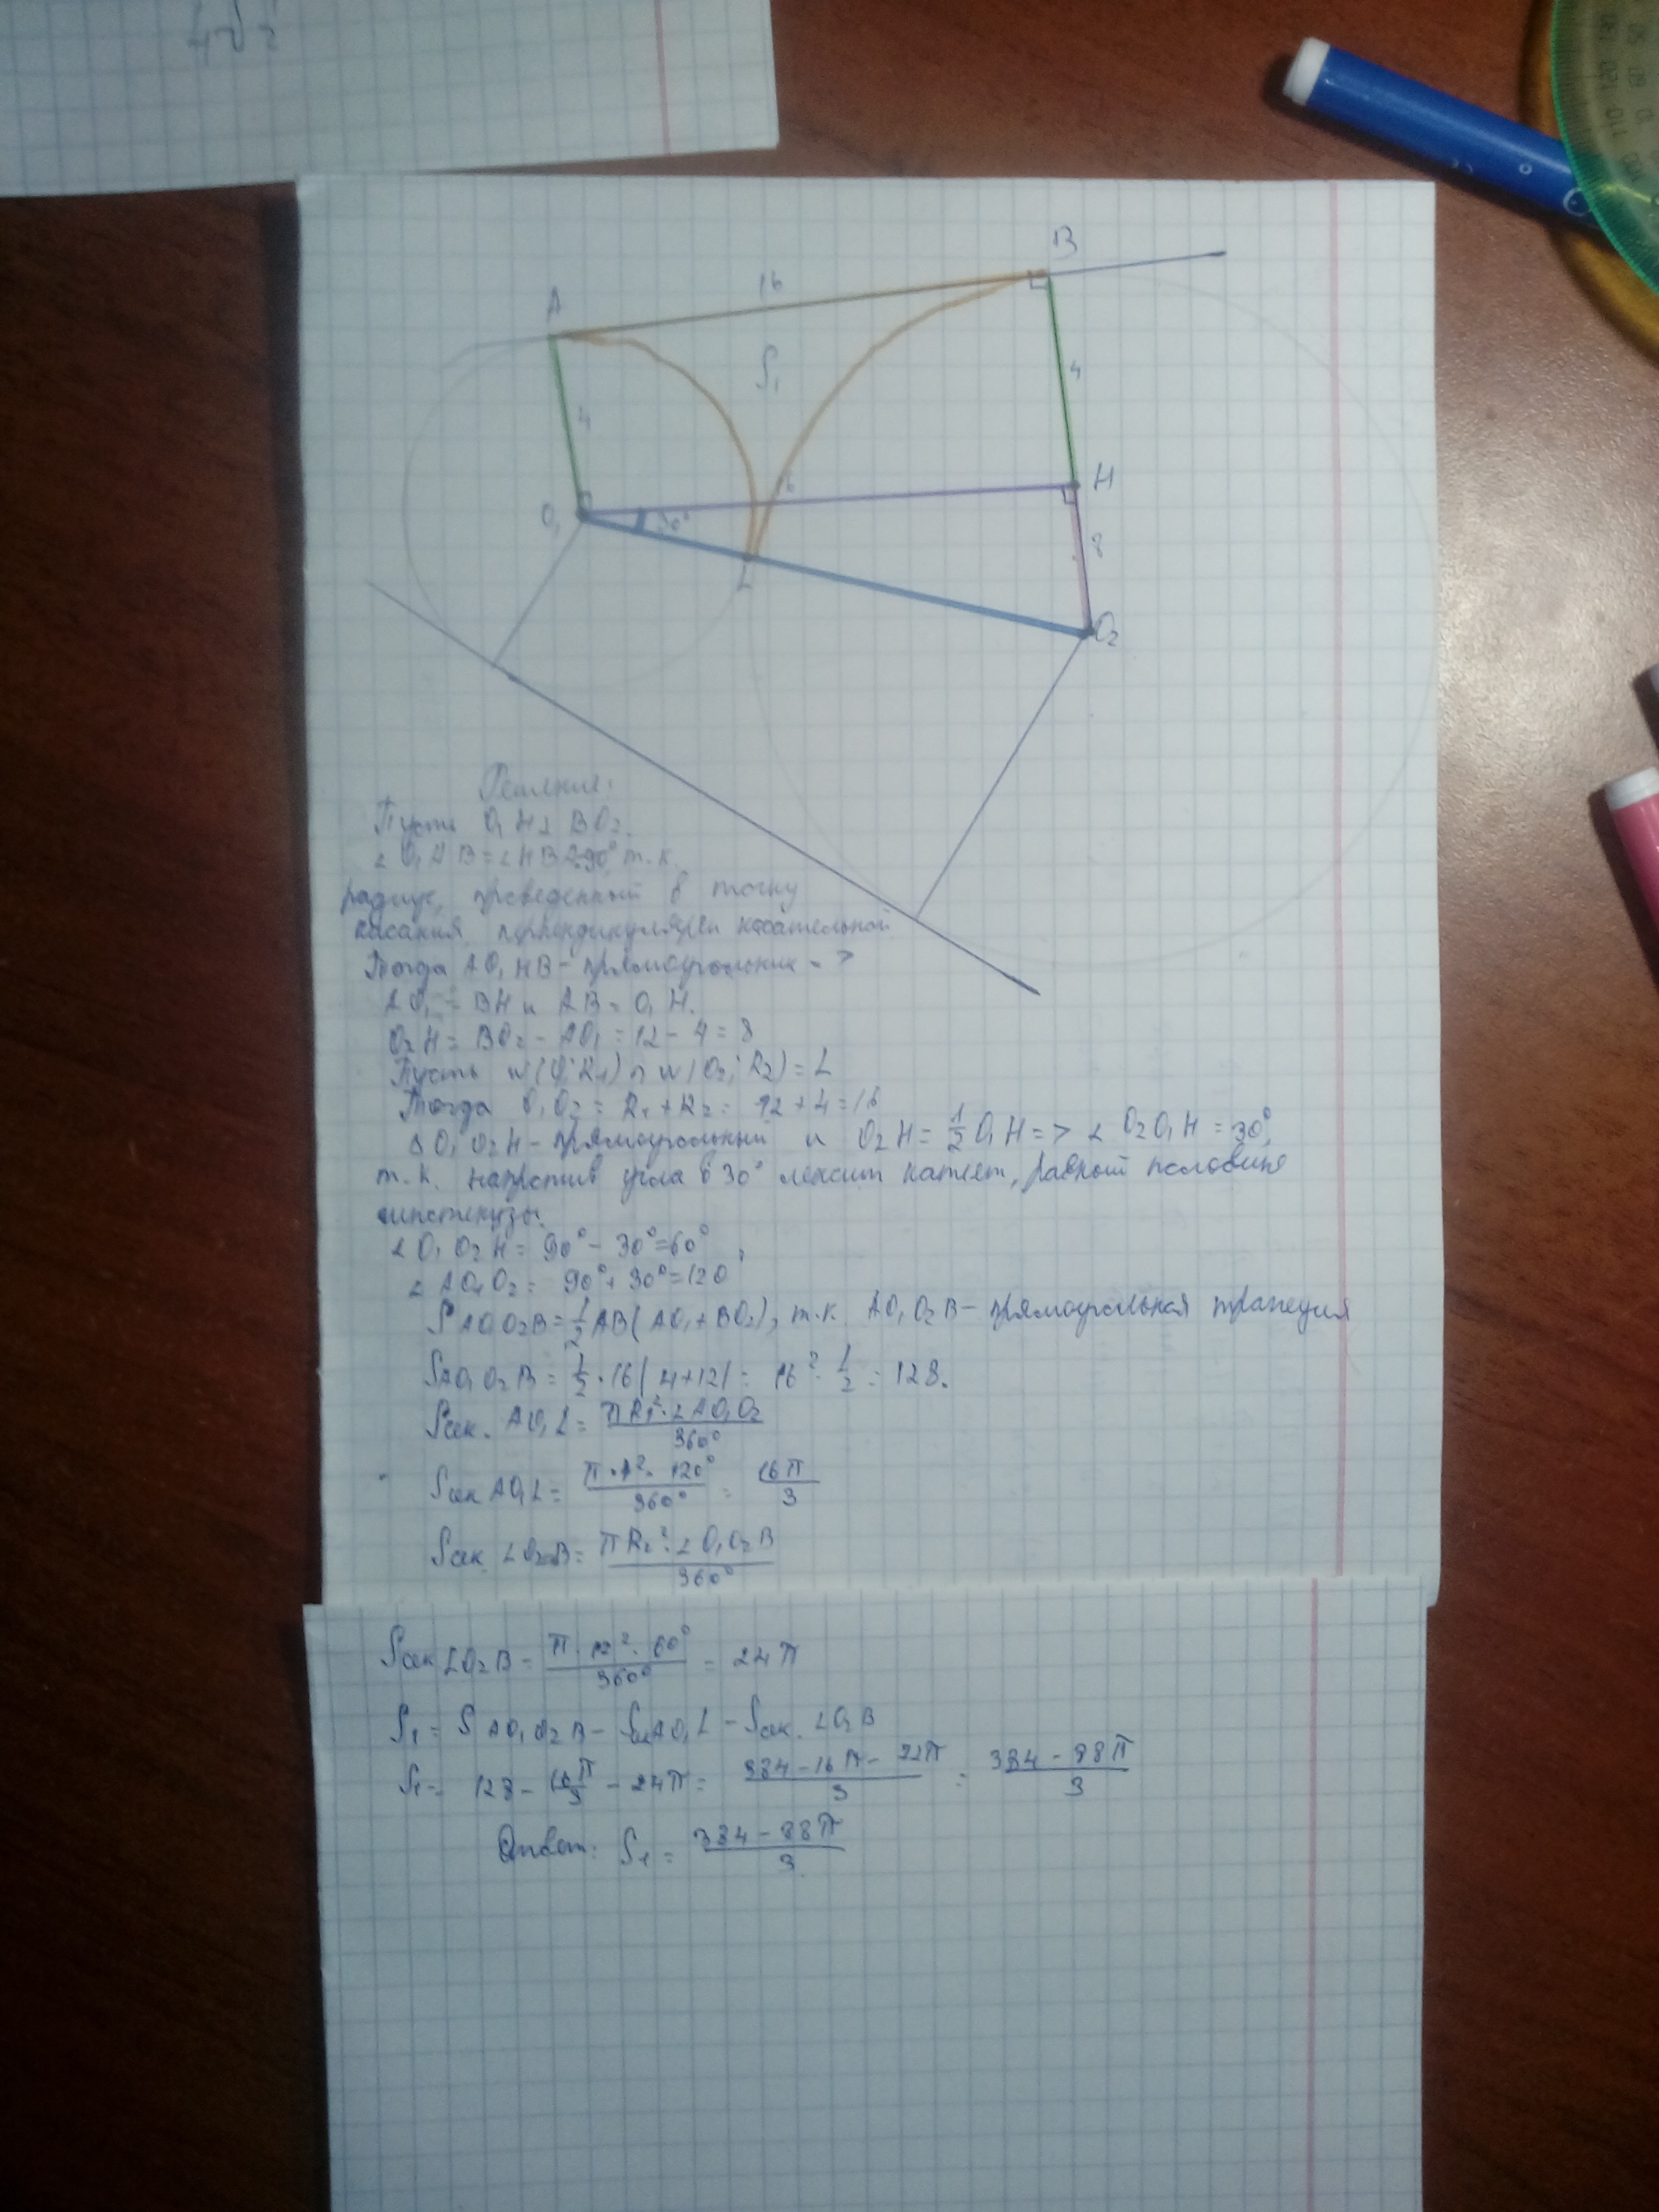 A
16
B
S₁
4
4
16
H
O₁
30°
8
L
O₂
Решение:
Пусть O₁H⊥BO₂.
∠O₁AB=∠HBA=90° т.к.
радиус, проведенный в точку
касания, перпендикулярен касательной
Тогда AO₁HB - прямоугольник =>
AO₁ = BH и AB = O₁H.
O₂H = BO₂ - AO₁ = 12 - 4 = 8
Пусть w(O₁;R₁) ∩ w(O₂;R₂) = L
Тогда O₁O₂ = R₁ + R₂ = 12 + 4 = 16
Δ O₁O₂H - прямоугольный и O₂H = 1/2 O₁H => ∠O₂O₁H = 30°,
т.к. напротив угла в 30° лежит катет, равный половине
гипотенузы.
∠O₁O₂H = 90° - 30° = 60°
∠AO₁O₂ = 90° + 30° = 120
S AO₁O₂B = 1/2 AB(AO₁ + BO₂), т.к. AO₁O₂B - прямоугольная трапеция
S AO₁O₂B = 1/2 · 16(4+12) = 16² · 1/2 = 128.
Sсек. AO₁L = πR₁² · ∠AO₁O₂ / 360°
Sсек AO₁L = π · 4² · 120° / 360° = 16π / 3
Sсек LO₂B = πR₂² · ∠O₁O₂B / 360°
Sсек LO₂B = π · 12² · 60° / 360° = 24π
S₁ = S AO₁O₂B - Sсек AO₁L - Sсек. LO₂B
S₁ = 128 - 16π/3 - 24π = 384 - 16π - 72π / 3 = 384 - 88π / 3
Ответ: S₁ = 384 - 88π / 3